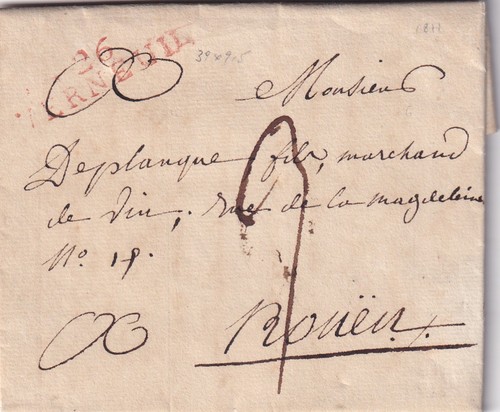 26
VERNEUIL
39x9.5
1811
Monsieur
Deplanque fils, marchand
de Vin, rue de la magdeleine
N.º 18.
Rouën